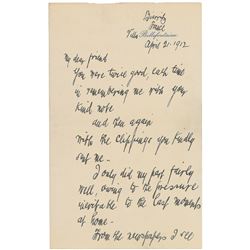 Biarritz
France
Villa Bellefontaine
April 21. 1912
My dear friend
You were twice good, each time
in remembering me with your
kind note
and then again
with the clippings you kindly
sent me—
I only did my part fairly
well, owing to the pressure
inevitable to the last moments
at home—
From the newspapers I see